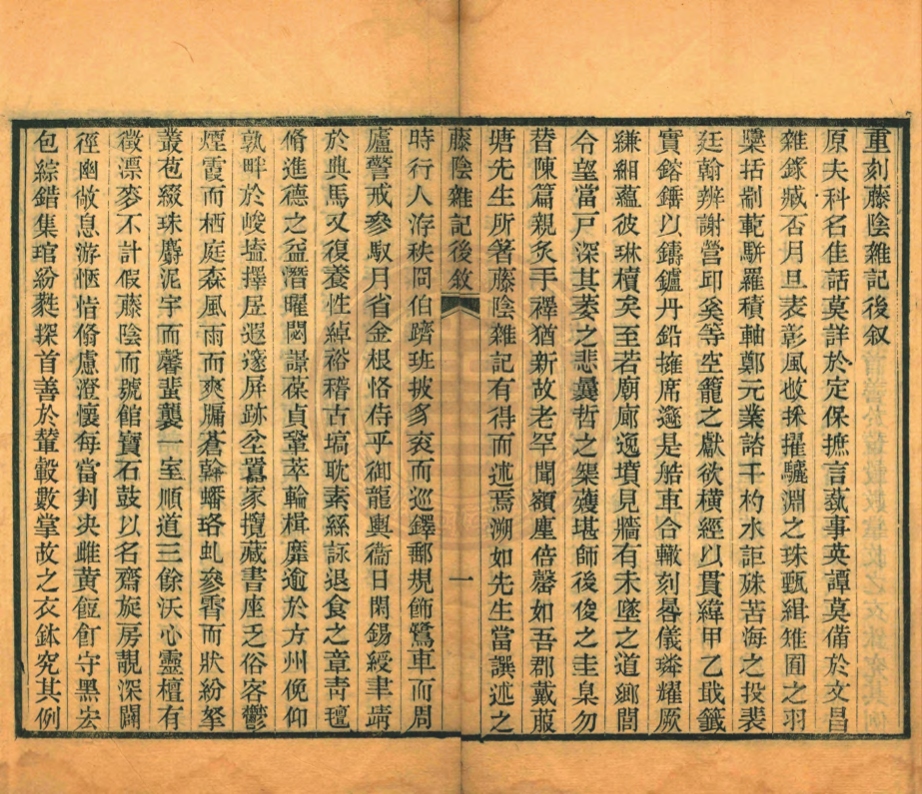 重刻藤陰雜記後叙
原夫科名佳話莫詳於定保摭言蓺事英譚莫備於文昌
雜錄臧否月旦表彰風攸採擢驪淵之珠甄緝雉囿之羽
櫽括制範駢羅積軸鄭元業諮千杓水詎殊苦海之投裴
廷翰辨謝營邱奚等空籠之獻欲橫經以貫緯甲乙戢籤
實鎔錘以鑄鑪丹鉛擁席邃是艁車合轍刻晷儀璘耀厥
縑緗蘊彼琳櫝矣至若廟廊逸墳見牆有未墜之道鄉閭
令望當戸深其萎之悲曩哲之榘矱堪師後俊之圭臬勿
替陳篇親炙手襗猶新故老罕聞額塵倍罄如吾郡戴菔
塘先生所箸藤陰雜記有得而述焉溯如先生當譔述之
藤陰雜記後敘 一
時行人洊秩冏伯躋班披豸衮而巡鐸郵規飾鷺車而周
廬警戒參馭月省金根恪侍乎御龍輿衞日閑錫綬聿靖
於典馬又復養性綽裕稽古塙耽素絲詠退食之章靑氊
脩進德之益潛曜閟諒葆貞鞏萃輪楫靡逾於方州俛仰
孰畔於峻墟擇居遐邃屏跡坌囂家攬藏書座乏俗客鬱
煙霞而栖庭森風雨而爽牖蒼榦蟠珞虬參霄而狀紛拏
叢苞綴珠麝泥宇而馨蜚襲一室順道三餘沃心靈檀有
徵漂麥不計假藤陰而號館寶石鼓以名齋旋房靚深闢
徑幽敞息游愜恉脩慮澄懷每當判决雌黃餖飣守黑宏
包綜錯集琯紛蕤探首善於輦轂數掌故之衣鉢究其例